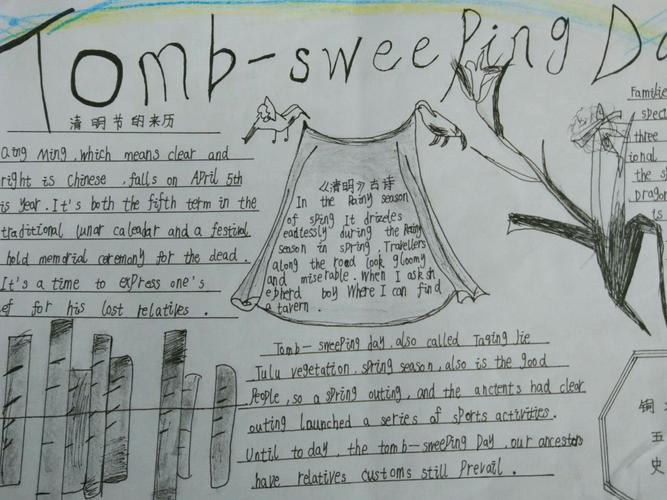 Tomb-sweeping Da
清明节的来历
Qing Ming, which means clear and
right is Chinese, falls on April 5th
is year. It's both the fifth term in the
traditional lunar calendar and a festival
hold memorial ceremony for the dead.
It's a time to express one's
ef for his lost relatives.
《清明》古诗
In the Rainy season
of sping It drizeles
eadtessly during the Rainy
season in spring. Travellers
along the road look gloomy
and miserable. When I ask sh
epherd boy Where I can find
a tavern.
Tamb-sweeping day, also called Taging Jie
Tulu vegetation, spring season, also is the good
People, so a spring outing, and the ancients had clear
outing launched a series of sports activities.
Until today, the tomb-sweeping Day, our ancestors
have relatives customs still Prevail.
Familie
spect
three
ional
the s
Dragon
is
铜
五
史